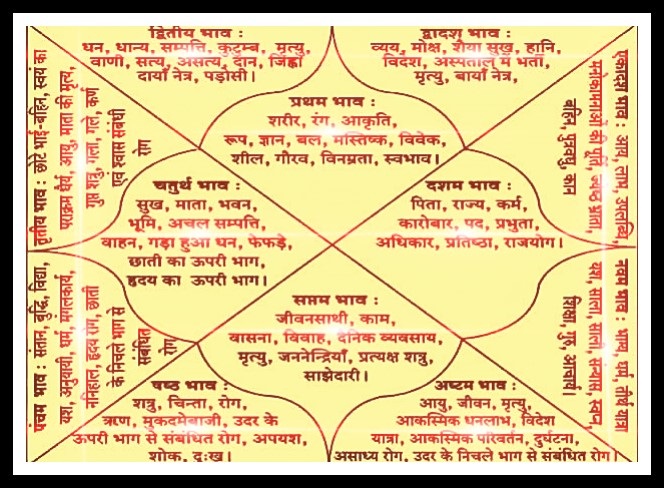 द्वितीय भाव :
धन, धान्य, सम्पत्ति, कुटुम्ब, मृत्यु,
वाणी, सत्य, असत्य, दान, जिह्वा
दायाँ नेत्र, पड़ोसी।
द्वादश भाव :
व्यय, मोक्ष, शैया सुख, हानि,
विदेश, अस्पताल में भर्ती,
मृत्यु, बायाँ नेत्र,
प्रथम भाव :
शरीर, रंग, आकृति,
रूप, ज्ञान, बल, मस्तिष्क, विवेक,
शील, गौरव, विनम्रता, स्वभाव।
तृतीय भाव : छोटे भाई-बहिन, स्वयं का
पराक्रम धैर्य, आयु, माता की मृत्यु,
गुप्त शत्रु, गला, गले, कर्ण
एवं श्वास संबंधी
रोग
एकादश भाव : आय, लाभ, उपलब्धि,
मनोकामनाओं की पूर्ति, ज्येष्ठ भ्राता,
बहिन, पुत्रवधु, कान
चतुर्थ भाव :
सुख, माता, भवन,
भूमि, अचल सम्पत्ति,
वाहन, गड़ा हुआ धन, फेफड़े,
छाती का ऊपरी भाग,
हृदय का ऊपरी भाग।
दशम भाव :
पिता, राज्य, कर्म,
कारोबार, पद, प्रभुता,
अधिकार, प्रतिष्ठा, राजयोग।
सप्तम भाव :
जीवनसाथी, काम,
वासना, विवाह, दैनिक व्यवसाय,
मृत्यु, जननेन्द्रियाँ, प्रत्यक्ष शत्रु,
साझेदारी।
पंचम भाव : संतान, बुद्धि, विद्या,
यश, अनुयायी, धर्म, मंगलकार्य,
ननिहाल, हृदय रोग, छाती
के निचले भाग से
संबंधित
रोग,
नवम भाव : भाग्य, धर्म, तीर्थ यात्रा
यश, साला, साली, संन्यास, स्वप्न,
शिक्षा, गुरु, आचार्य।
षष्ठ भाव :
शत्रु, चिन्ता, रोग,
ऋण, मुकदमेबाजी, उदर के
ऊपरी भाग से संबंधित रोग, अपयश,
शोक, दुःख।
अष्टम भाव :
आयु, जीवन, मृत्यु,
आकस्मिक धनलाभ, विदेश
यात्रा, आकस्मिक परिवर्तन, दुर्घटना,
असाध्य रोग, उदर के निचले भाग से संबंधित रोग।